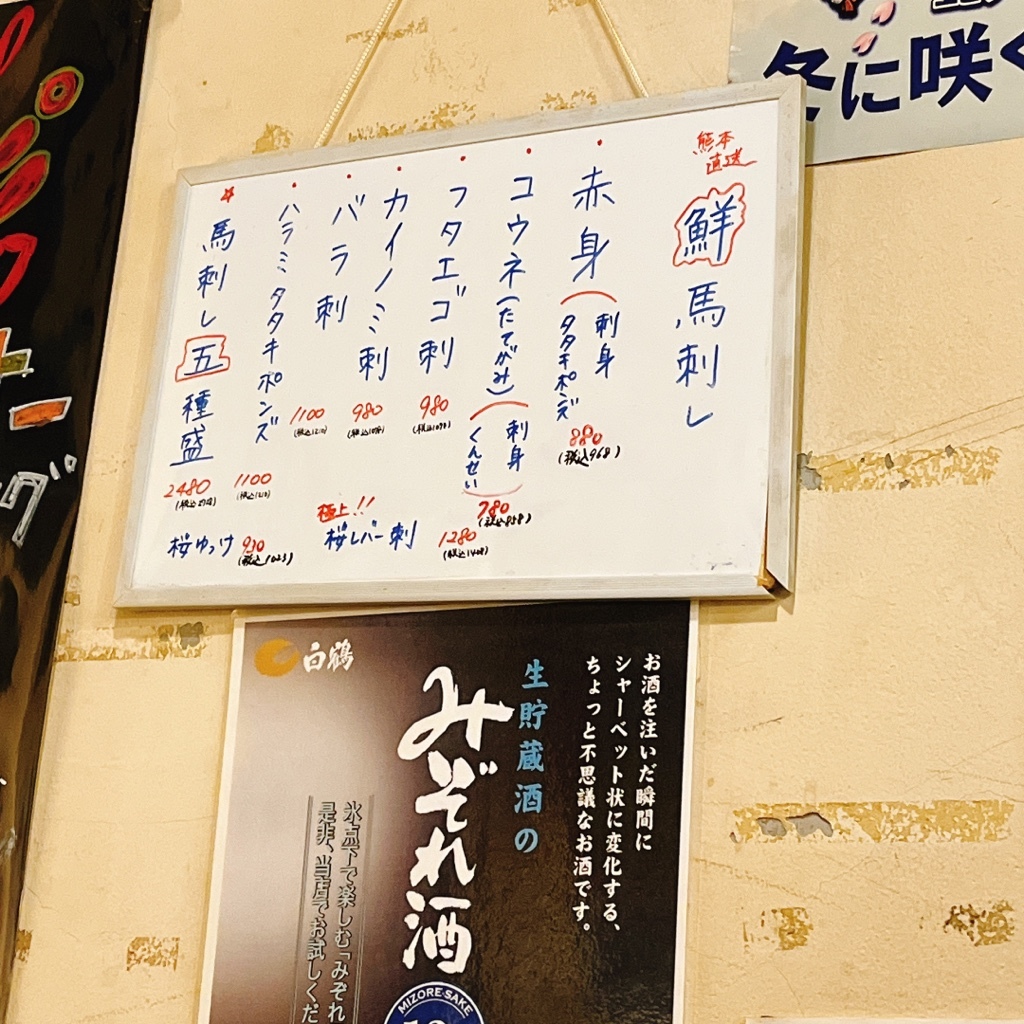 熊本
直送
鮮馬刺し
赤身(刺身
タタキポンズ
880
(税込968)
コウネ(たてがみ)(刺身
くんせい)
780
(税込858)
フタエゴ刺
980
(税込1078)
カイノミ刺
980
(税込1078)
バラ刺
1100
(税込1210)
ハラミタタキポンズ
1100
(税込1210)
馬刺し五種盛
2480
(税込2728)
極上!!
桜レバー刺
1280
(税込1408)
桜ゆっけ
930
(税込1023)
冬に咲く
白鶴
お酒を注いだ瞬間に
シャーベット状に変化する、
ちょっと不思議なお酒です。
生貯蔵酒の
みぞれ酒
氷点下で楽しむ「みぞれ
是非、当店でお試しくだ
MIZORE-SAKE